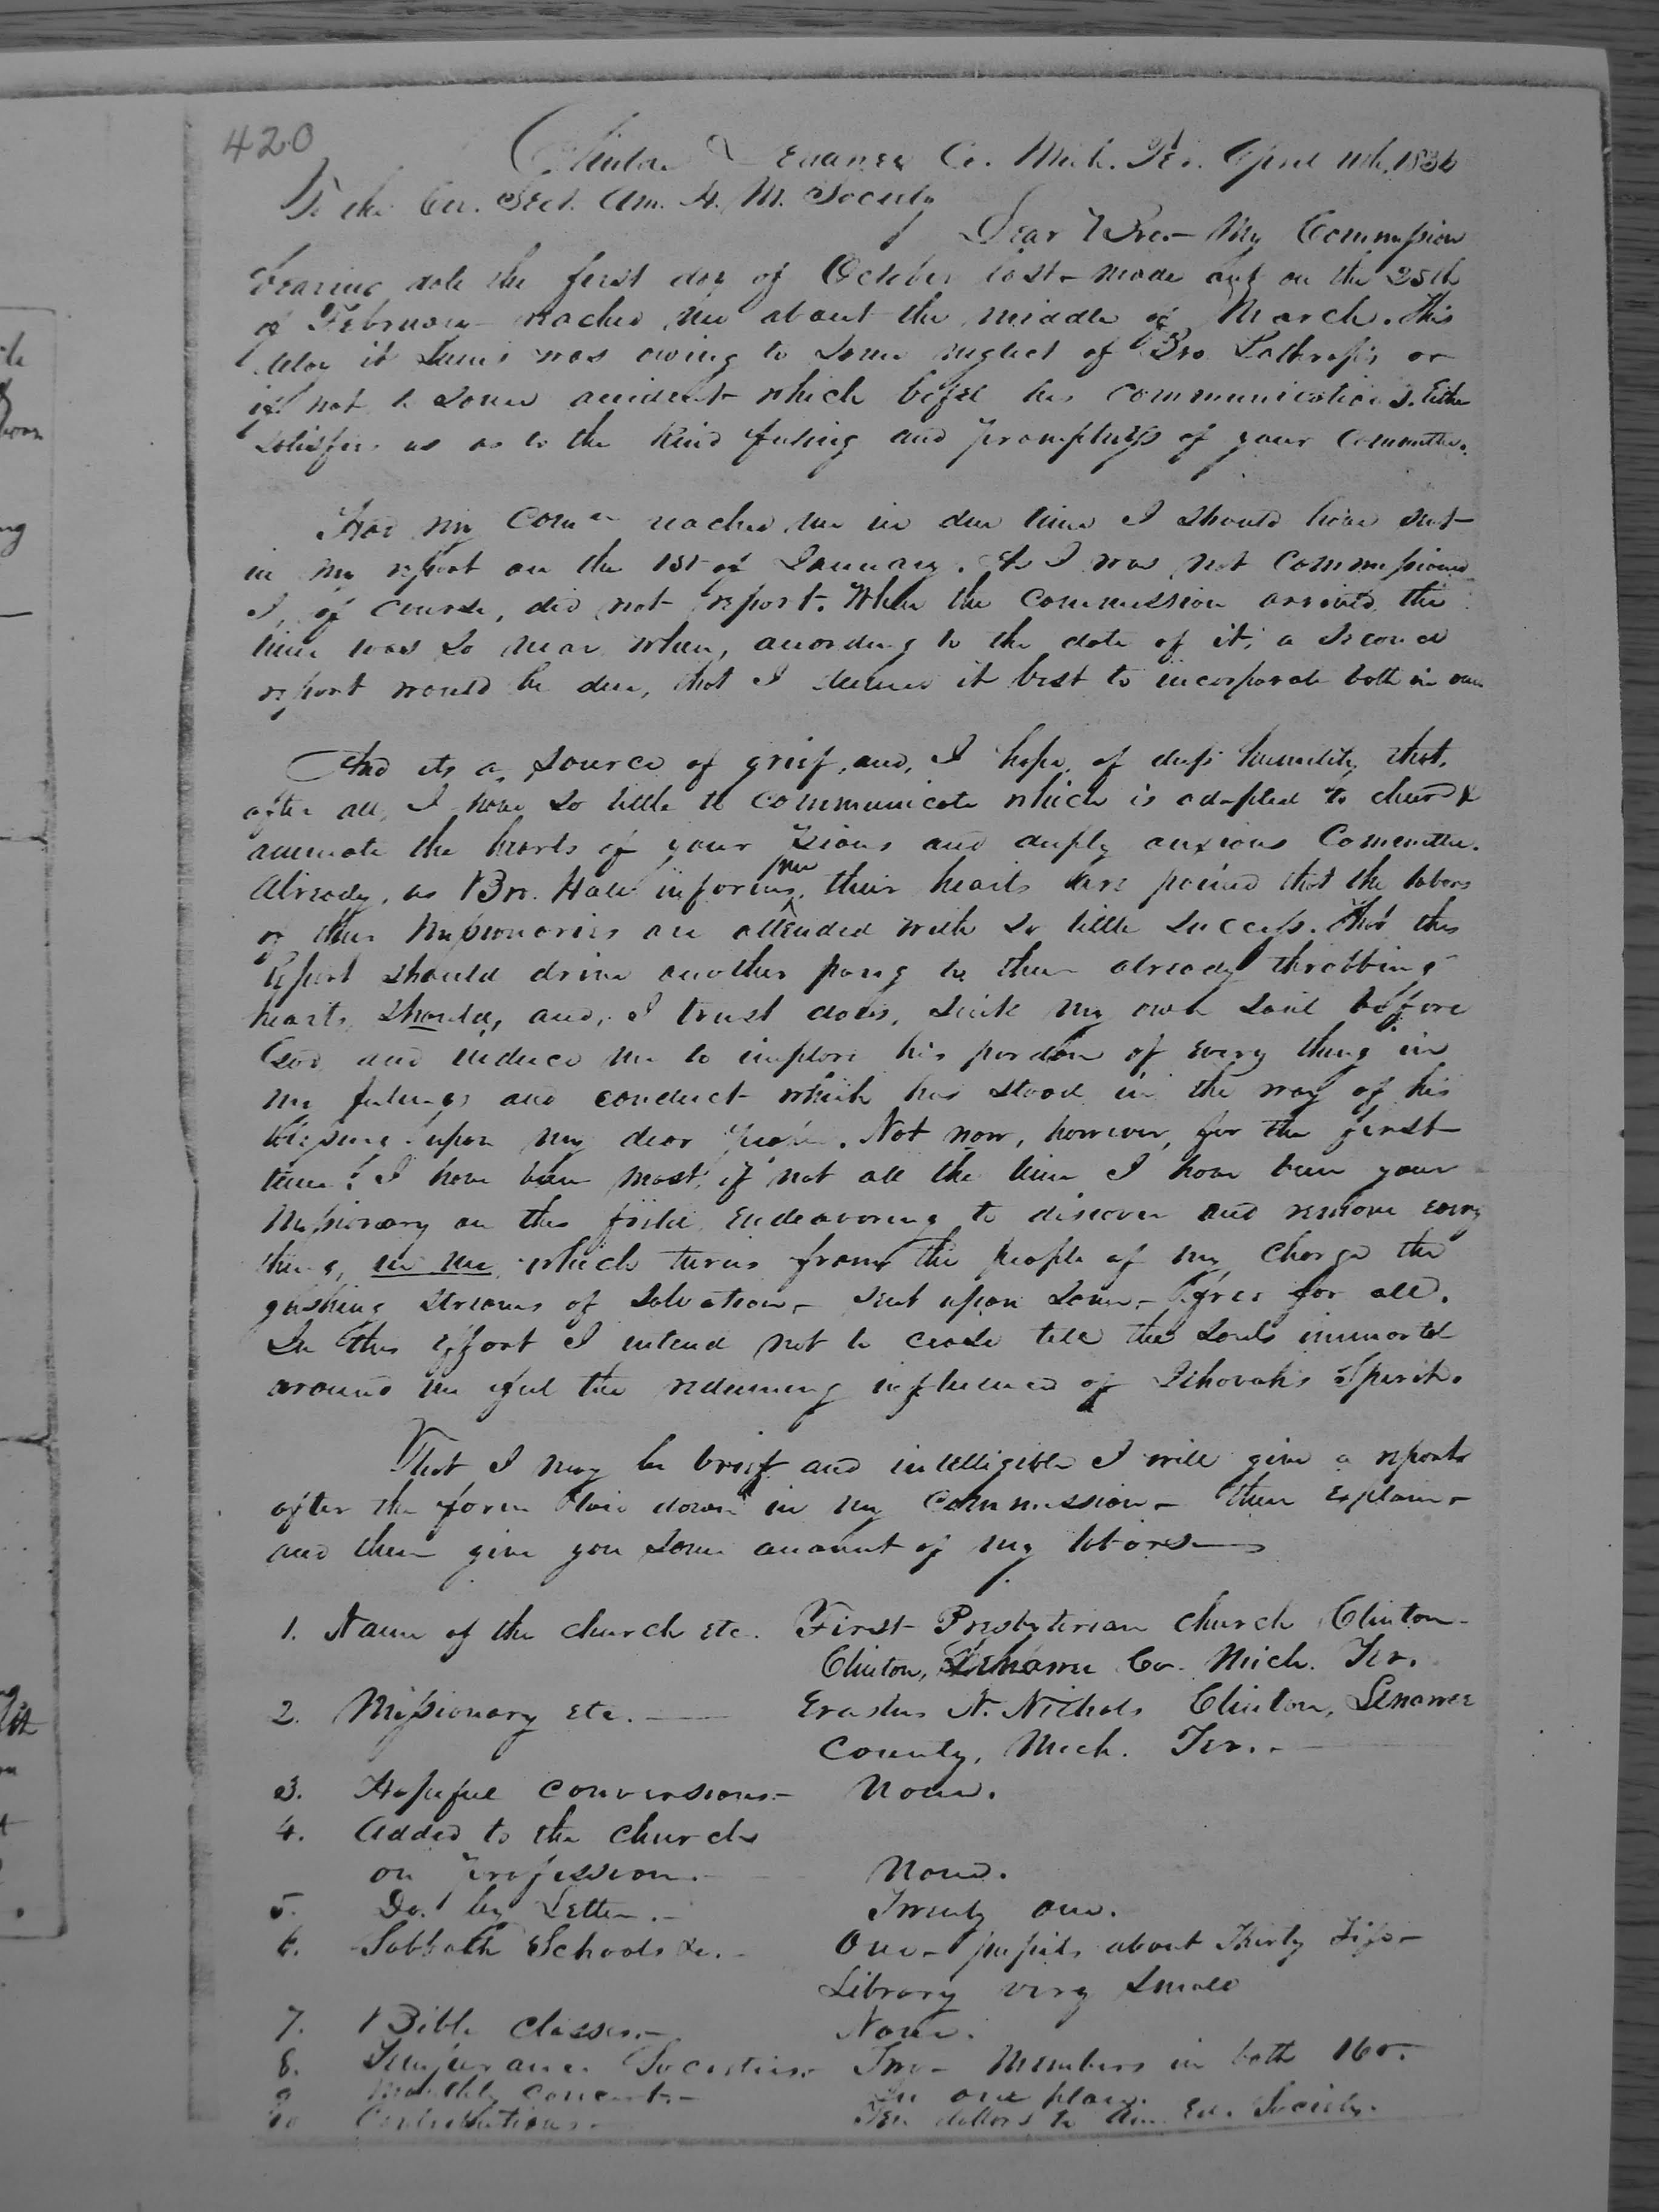 420
Clinton Lenawee Co. Mich. Ter. April 11th, 1836
To the Cor. Sect. Am. H. M. Society
Dear Bro.- My Commission
bearing date the first day of October last - made out on the 25th
of February reached me about the middle of March. This
delay it seems was owing to some neglect of Bro. Lathrop's or
if not to some accident which befel his communications. Either
satisfies us as to the kind feeling and promptness of your Committee.
Had my Comn reached me in due time I should have sent
in my report on the 1st of January. As I was not commissioned
I, of course, did not report. When the Commission arrived the
time was so near when, according to the date of it, a second
report would be due, that I deemed it best to incorporate both in one
And its a source of grief, and, I hope, of deep humility, that,
after all, I have so little to communicate which is adapted to cheer &
animate the hearts of your pious and deeply anxious Committee.
Already, as Bro. Hale informs me, their hearts are pained that the labors
of their Missionaries are attended with so little success. That this
report should drive another pang to their already throbbing
hearts, should, and, I trust does, sink my own soul before
God and induce me to implore his pardon of every thing in
my feelings and conduct which has stood in the way of his
blessing upon my dear people. Not now, however, for the first
time! I have been most, if not all the time I have been your
Missionary on this field, endeavoring to discover and remove every
thing, in me, which turns from the people of my charge the
gushing streams of salvation, - sent upon some, - free for all.
In this effort I intend not to cease till the souls immortal
around me feel the redeeming influence of Jehovah's Spirit.
That I may be brief and intelligible I will give a report
after the form laid down in my Commission - then explain -
and then give you some account of my labors -
1. Name of the church etc. First Presbyterian Church Clinton -
Clinton, Lenawee Co. Mich. Ter.
2. Missionary etc. - Erastus N. Nichols Clinton, Lenawee
County, Mich. Ter. -
3. Hopeful conversions - None.
4. Added to the church
on profession. - None.
5. Do. by Letter. - Twenty one.
6. Sabbath Schools &c. - One - pupils about Thirty Five -
Library very small
7. Bible classes. - None.
8. Temperance Societies. - Two - Members in both 160.
9 Monthly concert. - In one place.
10 Contributions - Ten dollars to Am. Ed. Society.